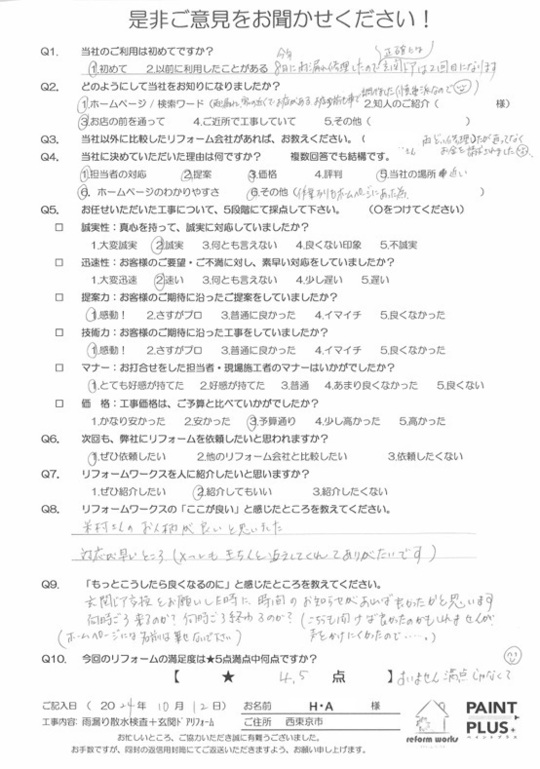 是非ご意見をお聞かせください！
Q1. 当社のご利用は初めてですか？
①初めて 2.以前に利用したことがある 今年8月に雨漏れ修理したので玄関ドアは2回目になります 正確には
Q2. どのようにして当社をお知りになりましたか？
①ホームページ / 検索ワード ( ) 2.知人のご紹介 ( 様)
③お店の前を通って 4.ご近所で工事していて 5.その他 ( )
Q3. 当社以外に比較したリフォーム会社があれば、お教えください。(
Q4. 当社に決めていただいた理由は何ですか？ 複数回答でも結構です。
①担当者の対応 ②提案 ③価格 4.評判 ⑤当社の場所 近い
⑥ ホームページのわかりやすさ ⑥その他 ( )
Q5. お任せいただいた工事について、5段階にて採点して下さい。 (〇をつけてください)
□ 誠実性：真心を持って、誠実に対応していましたか？
1.大変誠実 ②誠実 3.何とも言えない 4.良くない印象 5.不誠実
□ 迅速性：お客様のご要望・ご不満に対し、素早い対応をしていましたか？
1.大変迅速 ②速い 3.何とも言えない 4.少し遅い 5.遅い
□ 提案力：お客様のご期待に沿ったご提案をしていましたか？
①感動！ 2.さすがプロ 3.普通に良かった 4.イマイチ 5.良くなかった
□ 技術力：お客様のご期待に沿った工事をしていましたか？
①感動！ 2.さすがプロ 3.普通に良かった 4.イマイチ 5.良くなかった
□ マナー：お打合せをした担当者・現場施工者のマナーはいかがでしたか？
①とても好感が持てた 2.好感が持てた 3.普通 4.あまり良くなかった 5.良くない
□ 価 格：工事価格は、ご予算と比べていかがでしたか？
1.かなり安かった 2.安かった ③予算通り 4.少し高かった 5.高かった
Q6. 次回も、弊社にリフォームを依頼したいと思われますか？
①ぜひ依頼したい 2.他のリフォーム会社と比較したい 3.依頼したくない
Q7. リフォームワークスを人に紹介したいと思いますか？
1.ぜひ紹介したい ②紹介してもいい 3.紹介したくない
Q8. リフォームワークスの「ここが良い」と感じたところを教えてください。
さんのお人柄が良いと思いました
対応が早いところ (メールもきちんと返えしてくれてありがたいです)
Q9. 「もっとこうしたら良くなるのに」と感じたところを教えてください。
玄関ドア交換をお願いした時に、時間のお知らせがあれば良かったかと思います
何時ごろ来るのか？何時ごろ終わるのか？(こちらも聞けば良かったのかもしれませんが
(ホームページには名前は載せないで下さい) 声をかけにくかったので・・・。)
Q10. 今回のリフォームの満足度は★5点満点中何点ですか？
【 ★ 4.5 点 】 すいません満点じゃなくて
ご記入日 (2024年10月12日) お名前 H・A 様
工事内容：雨漏り散水検査＋玄関ドアリフォーム ご住所 西東京市
お忙しいところ、ご協力いただき誠に有難うございました。
お手数ですが、同封の返信用封筒にてご返送いただきますよう、お願い申し上げます。
reform works
PAINT
PLUS+
ペイントプラス